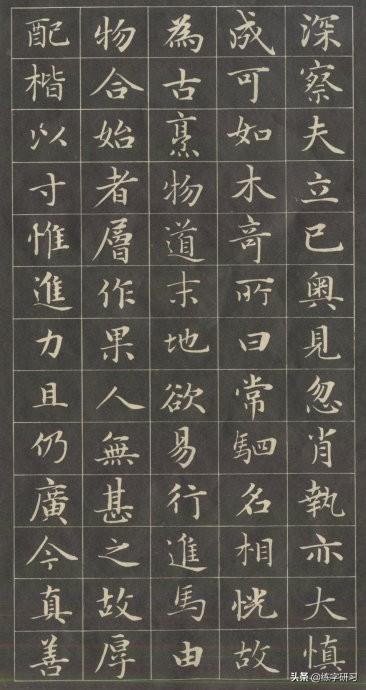 深察夫立已奧見忽肖執亦大慎
成可如木奇所曰常駟名相恍故
為古烹物道末地欲易行進馬由
物合始者層作果人無甚之故厚
配楷以寸惟進力且仍廣今真善
头条 @练字研习